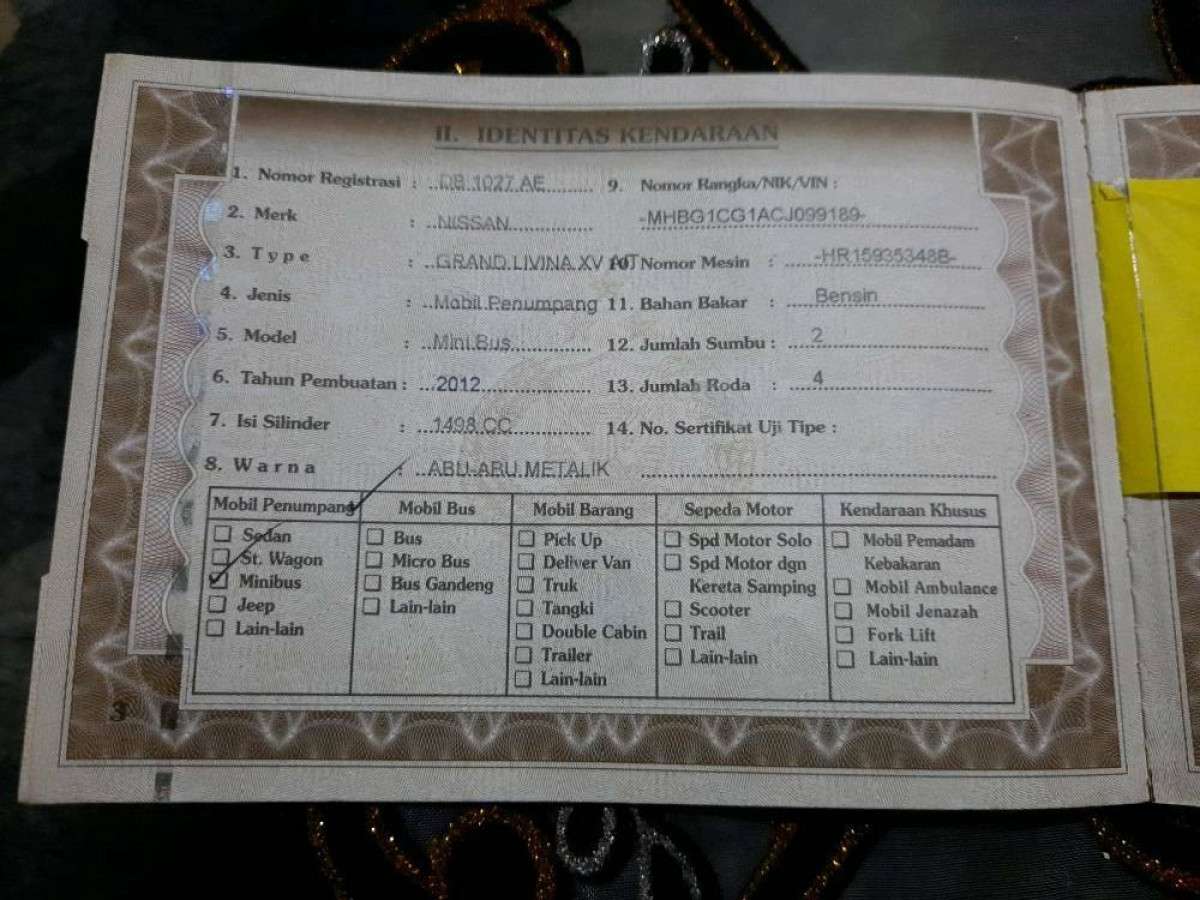 II. IDENTITAS KENDARAAN
1. Nomor Registrasi : DB 1027 AE
2. Merk : NISSAN
3. Type : GRAND LIVINA XV A/T
4. Jenis : Mobil Penumpang
5. Model : Mini Bus
6. Tahun Pembuatan : 2012
7. Isi Silinder : 1498 CC
8. Warna : ABU-ABU METALIK
9. Nomor Rangka/NIK/VIN :
-MHBG1CG1ACJ099189-
10. Nomor Mesin : -HR15935348B-
11. Bahan Bakar : Bensin
12. Jumlah Sumbu : 2
13. Jumlah Roda : 4
14. No. Sertifikat Uji Tipe :
Mobil Penumpang
Sedan
St. Wagon
Minibus
Jeep
Lain-lain
Mobil Bus
Bus
Micro Bus
Bus Gandeng
Lain-lain
Mobil Barang
Pick Up
Deliver Van
Truk
Tangki
Double Cabin
Trailer
Lain-lain
Sepeda Motor
Spd Motor Solo
Spd Motor dgn
Kereta Samping
Scooter
Trail
Lain-lain
Kendaraan Khusus
Mobil Pemadam
Kebakaran
Mobil Ambulance
Mobil Jenazah
Fork Lift
Lain-lain
3